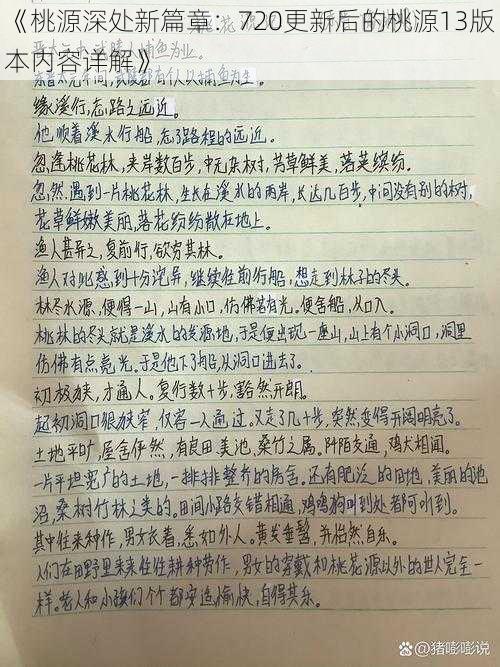 《桃源深处新篇章：720更新后的桃源13版
本内容详解》
缘溪行，忘路之远近。
他顺着溪水行船，忘了路程的远近。
忽逢桃花林，夹岸数百步，中无杂树，芳草鲜美，落英缤纷。
忽然遇到一片桃花林，生长在溪水的两岸，长达几百步，中间没有别的树，
花草鲜嫩美丽，落花纷纷散在地上。
渔人甚异之，复前行，欲穷其林。
渔人对此感到十分诧异，继续往前行船，想走到林子的尽头。
林尽水源，便得一山，山有小口，仿佛若有光。便舍船，从口入。
桃林的尽头就是溪水的发源地，于是便出现一座山，山上有个小洞口，洞里
仿佛有点亮光。于是他下了船，从洞口进去了。
初极狭，才通人。复行数十步，豁然开朗。
起初洞口很狭窄，仅容一人通过。又走了几十步，突然变得开阔明亮了。
土地平旷，屋舍俨然，有良田美池，桑竹之属。阡陌交通，鸡犬相闻。
一片平坦宽广的土地，一排排整齐的房舍。还有肥沃的田地，美丽的池
沼，桑树竹林之类的。田间小路交错相通，鸡鸣狗叫到处都可听到。
其中往来种作，男女衣着，悉如外人。黄发垂髫，并怡然自乐。
人们在田野里来来往往耕种劳作，男女的穿戴和桃花源以外的世人完全一
样。老人和小孩们个个都安适愉快，自得其乐。
@猪嘭嘭说